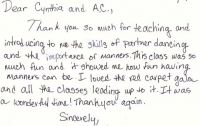 Dear Cynthia and A.C.,
Thank you so much for teaching and
introducing to me the skills of partner dancing
and the importance of manners. This class was so
much fun and it showed me how fun having
manners can be. I loved the red carpet gala
and all the classes leading up to it. It was
a wonderful time! Thank you again.
Sincerely,